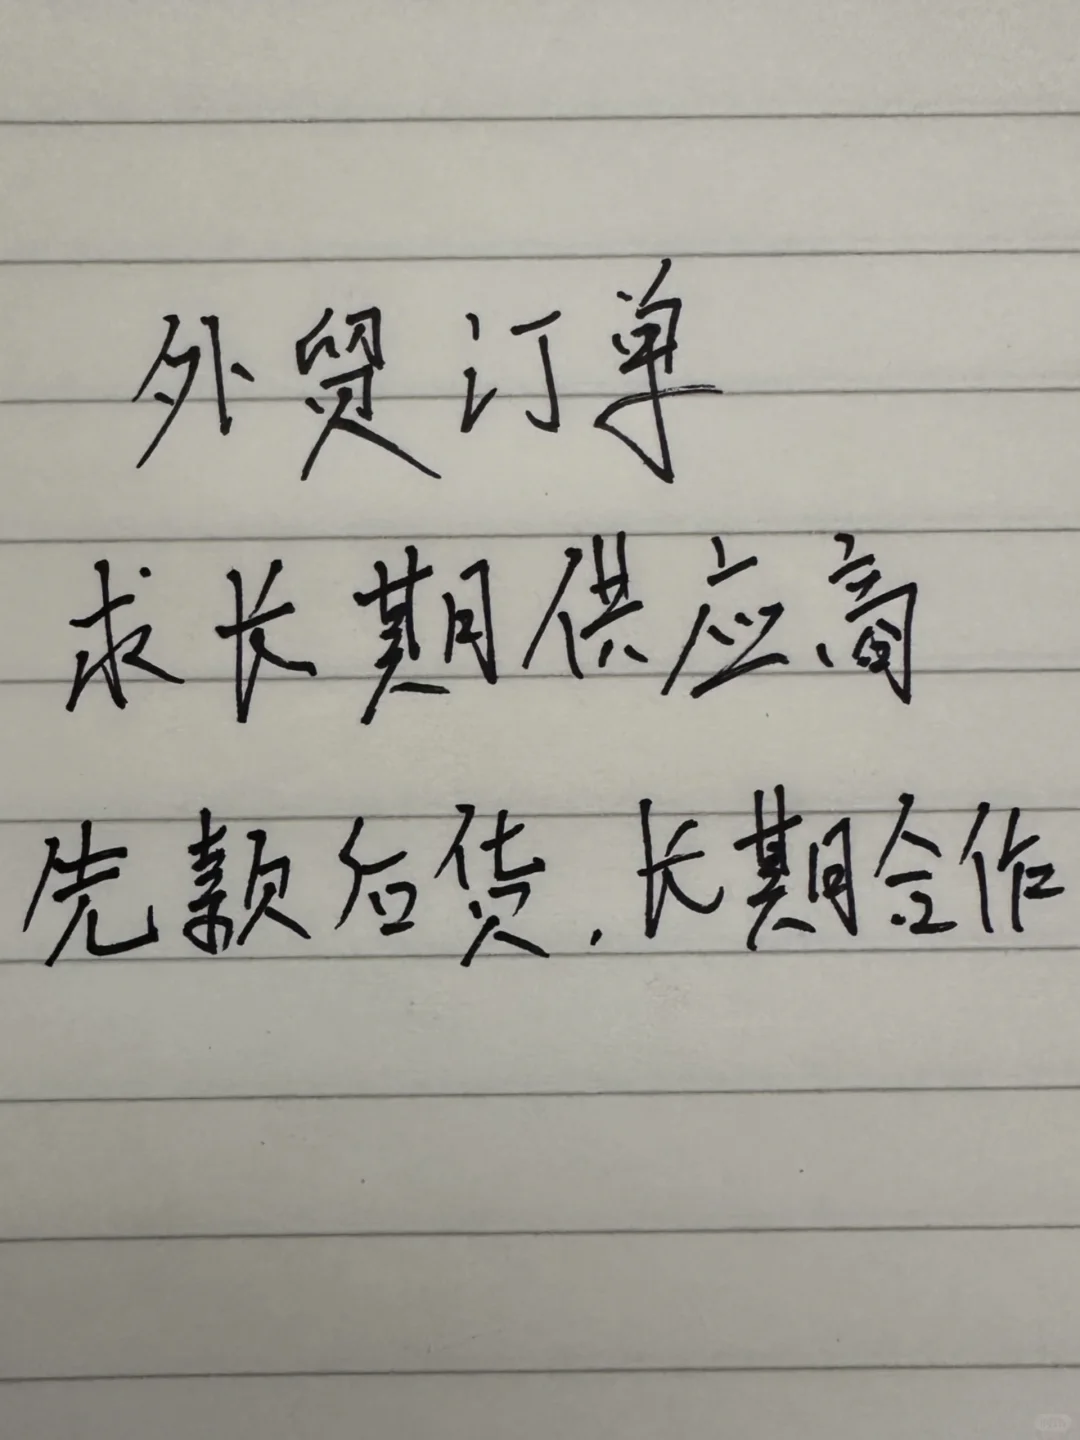 外贸订单
求长期供应商
先款后货,长期合作